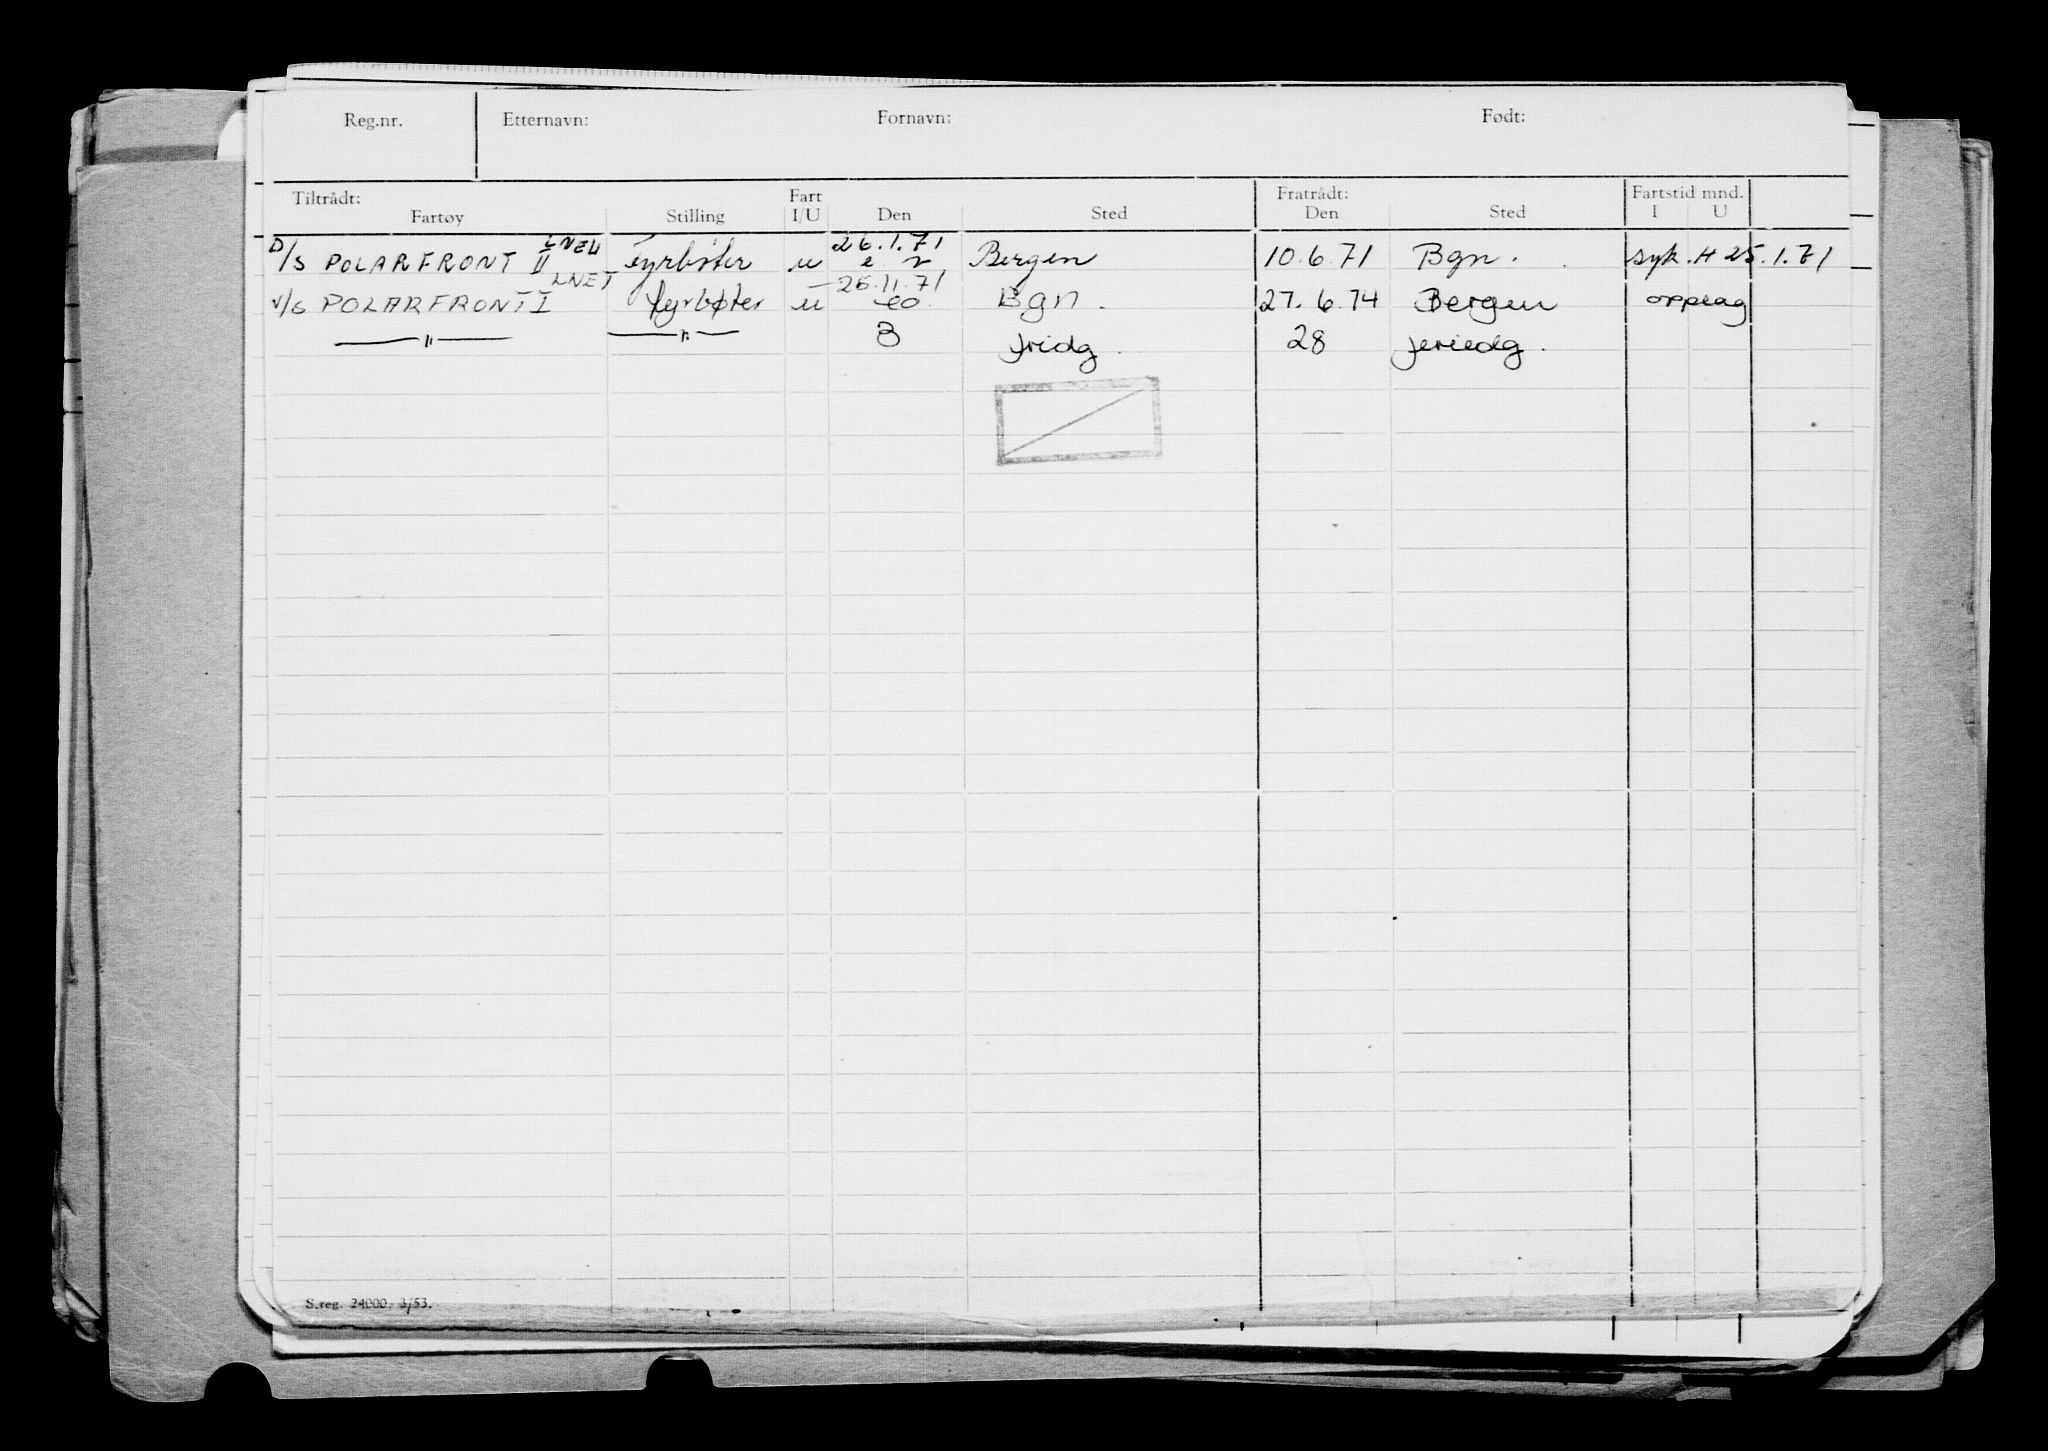 Reg.nr. Etternavn: Fornavn: Født:
Tiltrådt: Fart Fratrådt: Fartstid mnd.
Fartøy Stilling I/U Den Sted Den Sted I U
26.1.71
D/S POLARFRONT II Fyrbøter u Bergen 10.6.71 Bgn. syk. H 25.1.71
LNET 26.11.71
V/S POLARFRONT I fyrbøter u Bgn. 27.6.74 Bergen opplag
—"— —"— 3 fridg. 28 feriedg.
S.reg. 24000. 3/53.